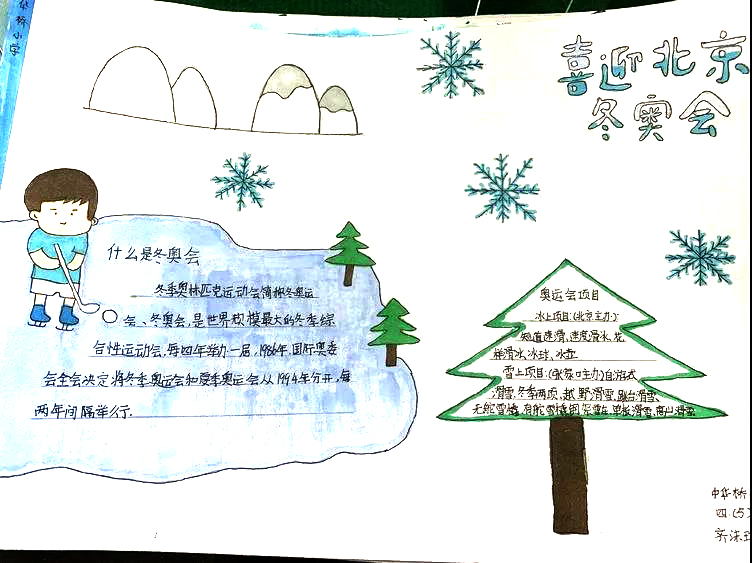 华桥小学
喜迎北京
冬奥会
什么是冬奥会
冬季奥林匹克运动会简称冬奥运
会、冬奥会,是世界规模最大的冬季综
合性运动会,每四年举办一届,1986年,国际奥委
会全会决定将冬季奥运会和夏季奥运会从1994年分开,每
两年间隔举行.
奥运会项目
冰上项目:(北京主办):
短道速滑,速度滑冰,花
样滑冰,冰球,冰壶
雪上项目:(张家口主办)自游式
滑雪,冬季两项,越野滑雪,跳台滑雪、
无舵雪橇,有舵雪橇,钢架雪车,单板滑雪,高山滑雪
中华桥
四.(5)